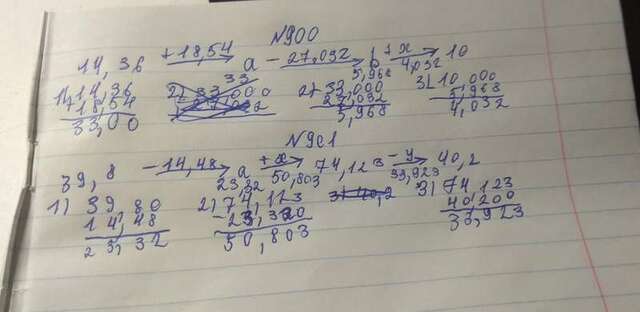 N900
14,36 +18,54 a -27,032 b +x 10
33 5,968 4,032
1) 14,36 2) 33,000 3) 10,000
+18,54 27,032 5,968
33,00 5,968 4,032
N901
39,8 -14,48 a +x 74,123 -y 40,2
23,32 50,803 33,923
1) 39,80 2) 74,123 3) 40,2 3) 74,123
14,48 -23,320 40,200
23,32 50,803 33,923